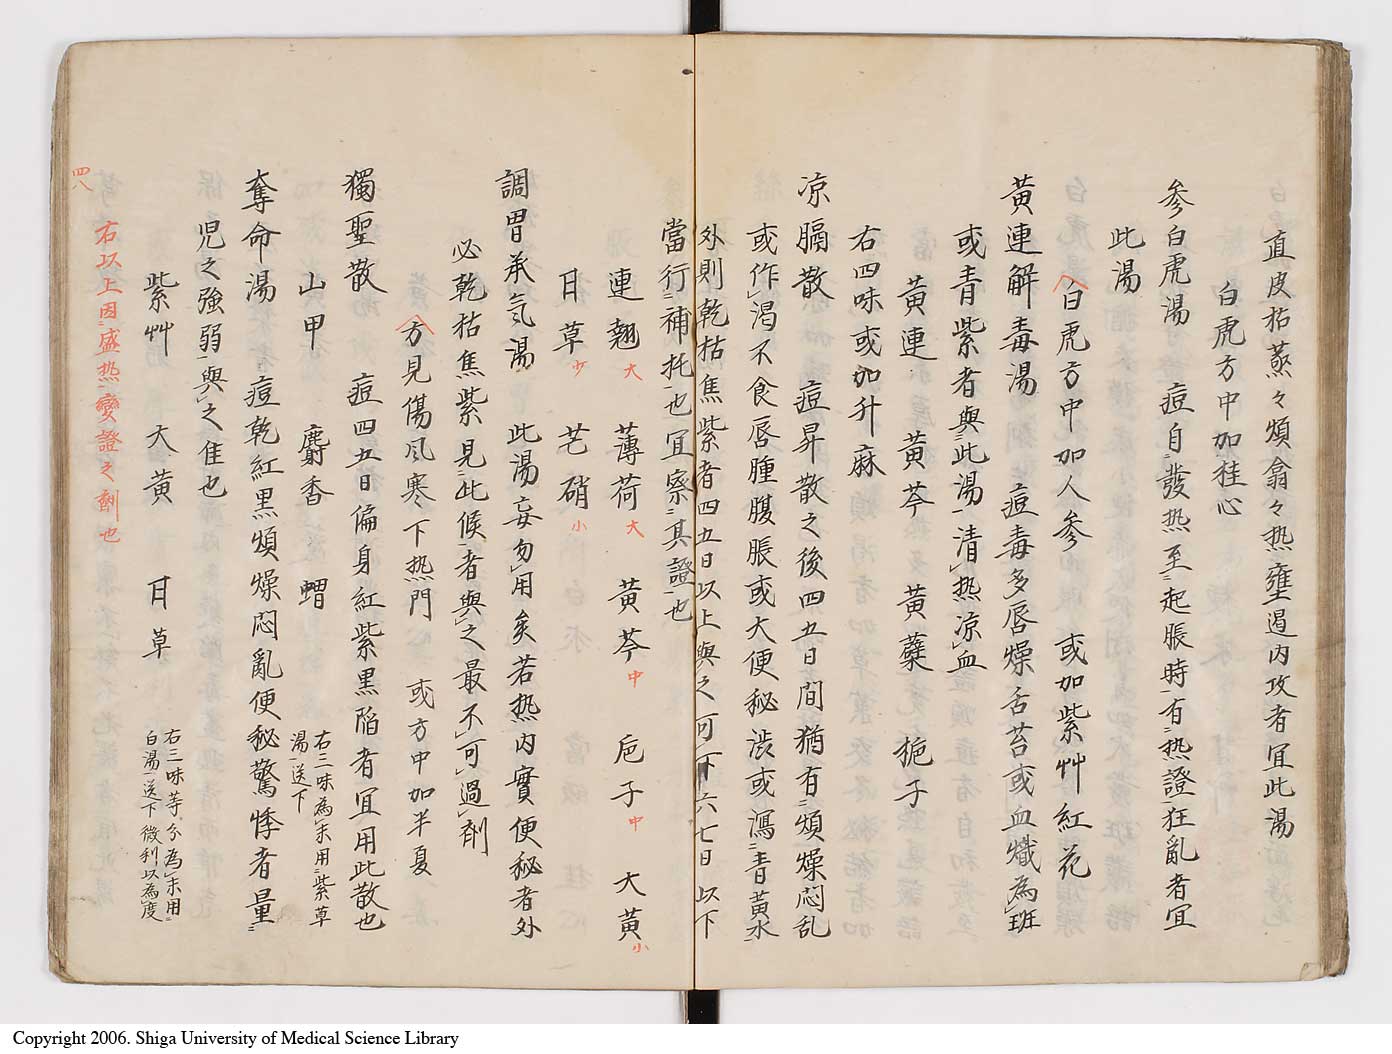 直皮枯蒸々煩翕々热壅遏内攻者冝此湯
白虎方中加桂心
参白虎湯 痘自發热至起脹時有热證狂亂者冝
此湯
白虎方中加人参 或加紫艸紅花
黄連解毒湯 痘毒多唇燥舌苔或血熾為班
或青紫者與此湯清热凉血
黄連 黄芩 黄蘗 梔子
右四味或加升麻
凉膈散 痘昇散之後四五日間猶有煩燥悶乱
或作渇不食唇腫腹脹或大便秘渋或瀉青黄水
外則乾枯焦紫者四五日以上與之可下六七日以下
當行補托也冝察其證也
連翹大 薄荷大 黄芩中 巵子中 大黄小
甘草少 芒硝小
調胃承氣湯 此湯妄勿用矣若热内實便秘者外
必乾枯焦紫見此候者與之最不可過剤
方見傷风寒下热門 或方中加半夏
獨聖散 痘四五日偏身紅紫黒陷者冝用此散也
山甲 麝香 蝟 右三味為末用紫草
湯送下
奪命湯 痘乾紅黒煩燥悶亂便秘驚悸者量
児之強弱與之佳也
紫艸 大黄 甘草 右三味等分為末用
白湯送下微利以為度
右以上因盛热變證之劑也
四八
Copyright 2006. Shiga University of Medical Science Library